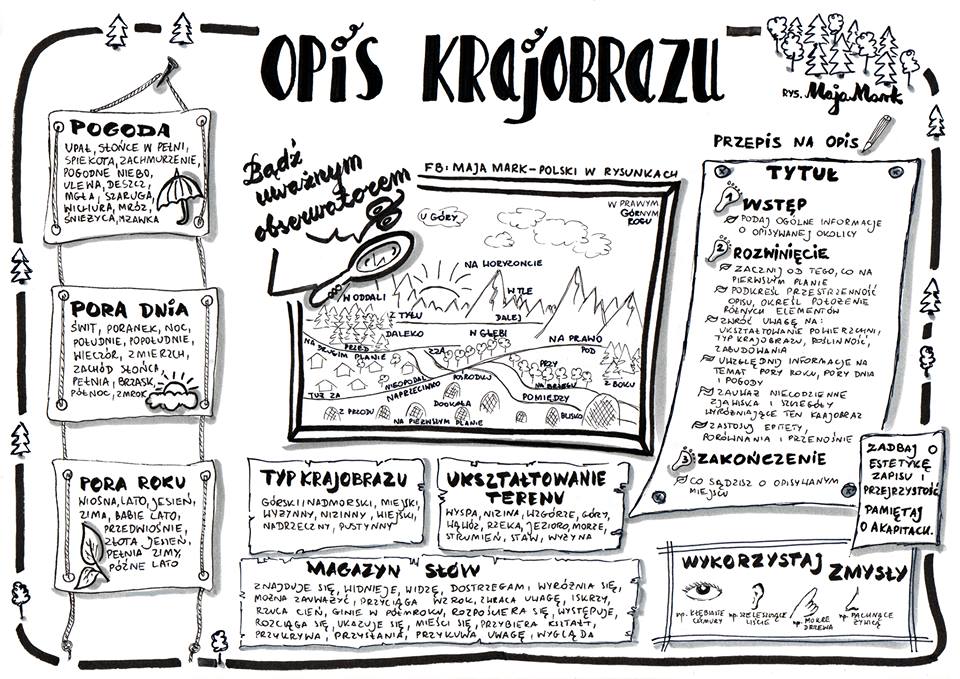 OPIS KRAJOBRAZU
RYS. Maja Mark
POGODA
UPAŁ, SŁOŃCE W PEŁNI,
SPIEKOTA, ZACHMURZENIE,
POGODNE NIEBO,
ULEWA, DESZCZ,
MGŁA, SZARUGA,
WICHURA, MRÓZ,
ŚNIEŻYCA, MŻAWKA
PORA DNIA
ŚWIT, PORANEK, NOC,
POŁUDNIE, POPOŁUDNIE,
WIECZÓR, ZMIERZCH,
ZACHÓD SŁOŃCA
PEŁNIA, BRZASK,
PÓŁNOC, ZMROK
PORA ROKU
WIOSNA, LATO, JESIEŃ,
ZIMA, BABIE LATO,
PRZEDWIOŚNIE,
ZŁOTA JESIEŃ,
PEŁNIA ZIMY,
PÓŹNE LATO
Bądź
uważnym
obserwatorem
FB: MAJA MARK-POLSKI W RYSUNKACH
U GÓRY
W PRAWYM
GÓRNYM
ROGU
NA HORYZONCIE
W ODDALI
W TLE
Z TYŁU
DALEJ
DALEKO
W GŁĘBI
NA PRAWO
PRZED
NA DRUGIM PLANIE
ZZA
POD
PRZY
POŚRODKU
NIEOPODAL
NA BRZEGU
Z BOKU
TUŻ ZA
NAPRZECIWKO
POMIĘDZY
DOOKOŁA
Z PRZODU
BLISKO
NA PIERWSZYM PLANIE
TYP KRAJOBRAZU
GÓRSKI, NADMORSKI, MIEJSKI,
WYŻYNNY, NIZINNY, WIEJSKI,
NADRZECZNY, PUSTYNNY
UKSZTAŁTOWANIE
TERENU
WYSPA, NIZINA, WZGÓRZE, GÓRY,
WĄWÓZ, RZEKA, JEZIORO, MORZE,
STRUMIEŃ, STAW, WYŻYNA
MAGAZYN SŁÓW
ZNAJDUJE SIĘ, WIDNIEJE, WIDZĘ, DOSTRZEGAM, WYRÓŻNIA SIĘ,
MOŻNA ZAUWAŻYĆ, PRZYCIĄGA WZROK, ZWRACA UWAGĘ, ISKRZY,
RZUCA CIEŃ, GINIE W PÓŁMROKU, ROZPOŚCIERA SIĘ, WYSTĘPUJE,
ROZCIĄGA SIĘ, UKAZUJE SIĘ, MIEŚCI SIĘ, PRZYBIERA KSZTAŁT,
PRZYKRYWA, PRZYSŁANIA, PRZYKUWA UWAGĘ, WYGLĄDA
PRZEPIS NA OPIS
TYTUŁ
1 WSTĘP
PODAJ OGÓLNE INFORMACJE
O OPISYWANEJ OKOLICY
2 ROZWINIĘCIE
ZACZNIJ OD TEGO, CO NA
PIERWSZYM PLANIE
PODKREŚL PRZESTRZENNOŚĆ
OPISU, OKREŚL POŁOŻENIE
RÓŻNYCH ELEMENTÓW
ZWRÓĆ UWAGĘ NA:
UKSZTAŁTOWANIE POWIERZCHNI,
TYP KRAJOBRAZU, ROŚLINNOŚĆ,
ZABUDOWANIA
UWZGLĘDNIJ INFORMACJE NA
TEMAT PORY ROKU, PORY DNIA
I POGODY
ZAUWAŻ NIECODZIENNE
ZJAWISKA I SZCZEGÓŁY
WYRÓŻNIAJĄCE TEN KRAJOBRAZ
ZASTOSUJ EPITETY,
PORÓWNANIA I PRZENOŚNIE
3 ZAKOŃCZENIE
CO SĄDZISZ O OPISYWANYM
MIEJSCU
ZADBAJ O
ESTETYKĘ
ZAPISU I
PRZEJRZYSTOŚĆ
PAMIĘTAJ
O AKAPITACH.
WYKORZYSTAJ ZMYSŁY
np. KŁĘBIASTE
CHMURY
np. SZELESZCZĄCE
LIŚCIE
np. MOKRE
DRZEWA
np. PACHNĄCE
ŻYWICĄ